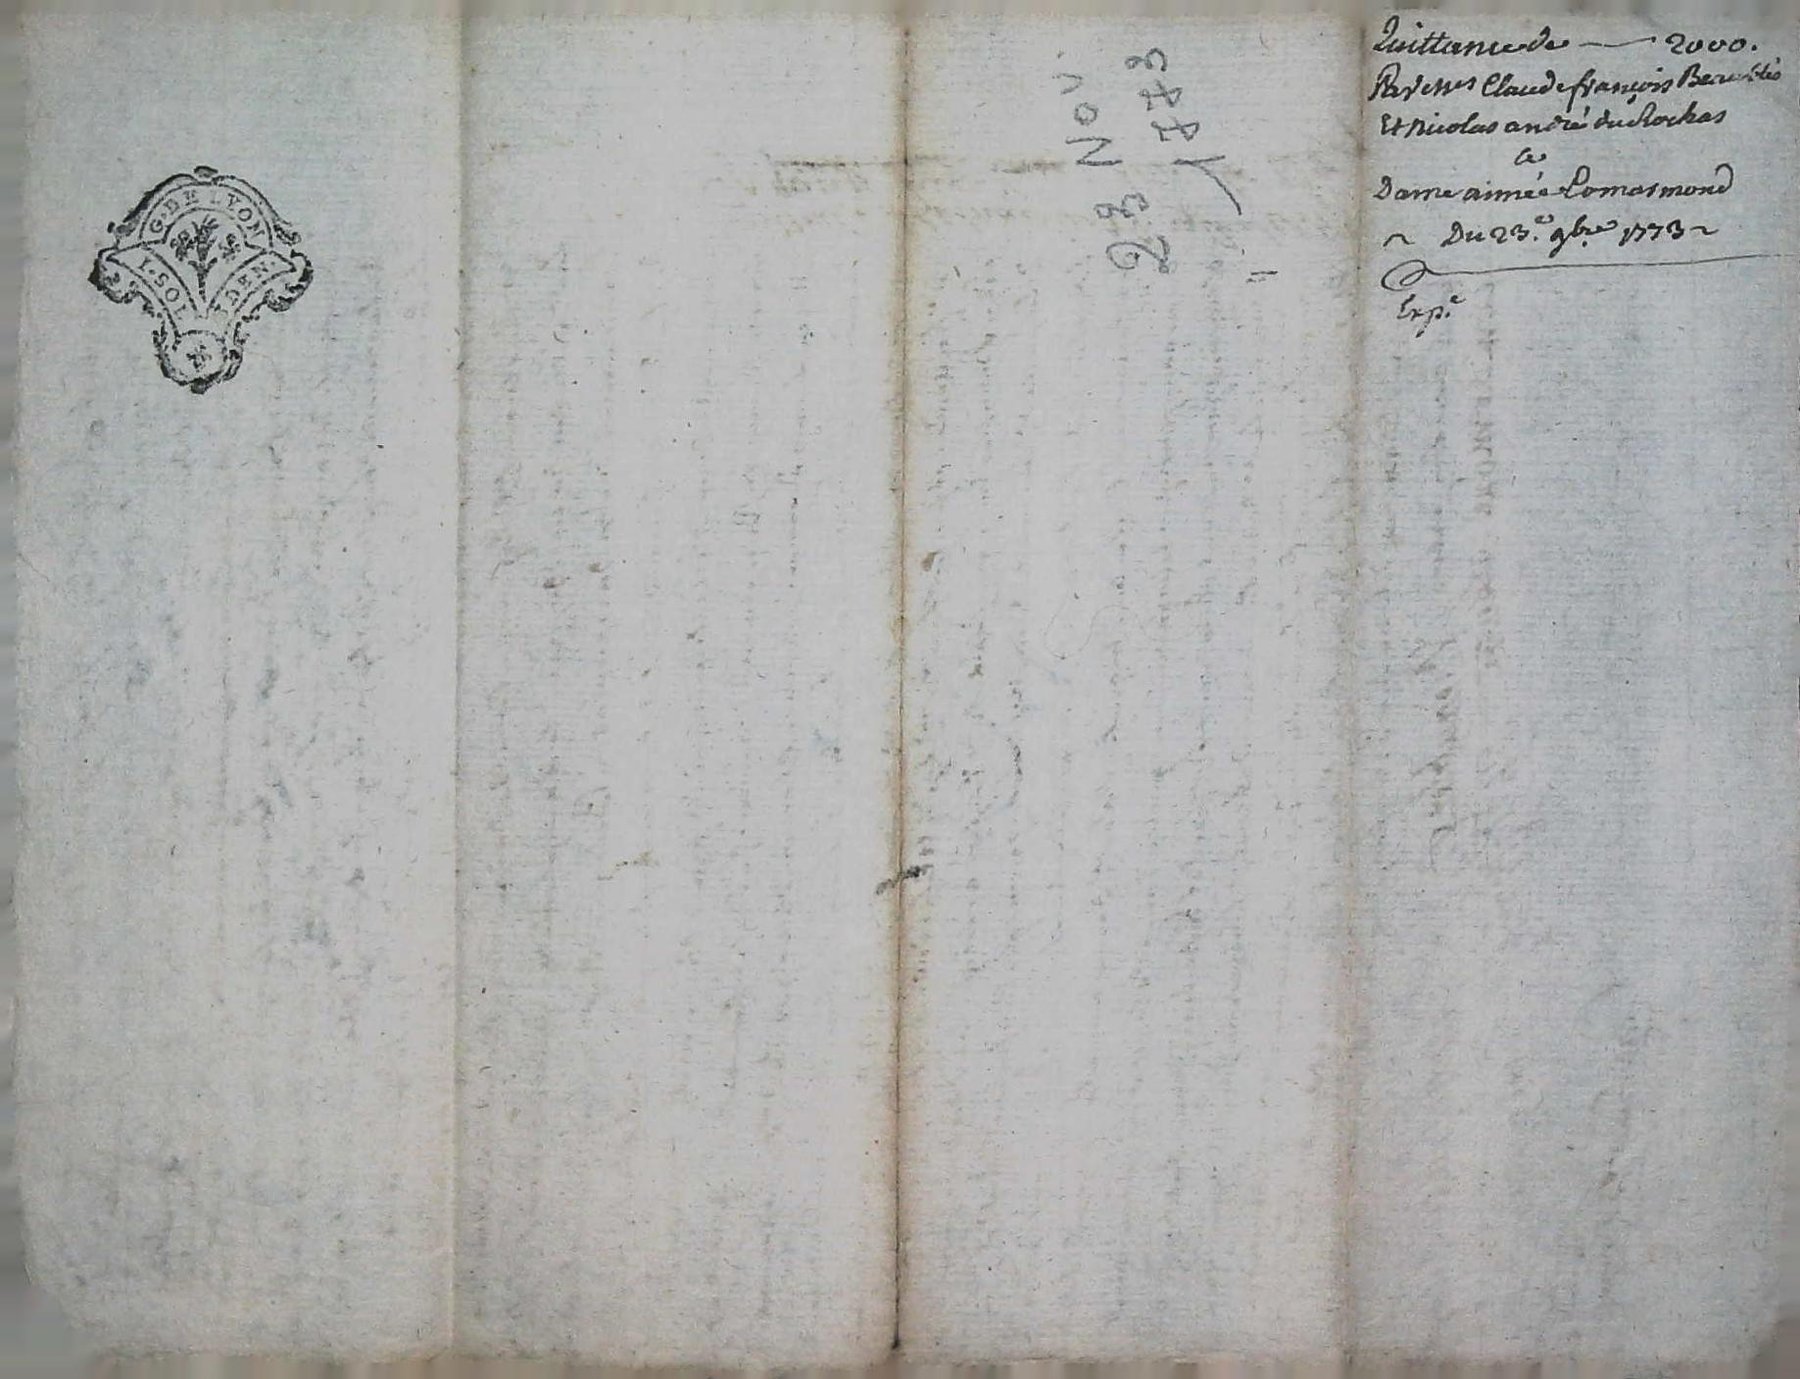 G. DE LYON
1. SOL DEN.
23 Nov.
1773
Quittance de — 2000.
Claude françois
Et nicolas andré du Rochas
a
Dame aimée Lomasmond
~ Du 23.e 9bre 1773 ~
Exp.e